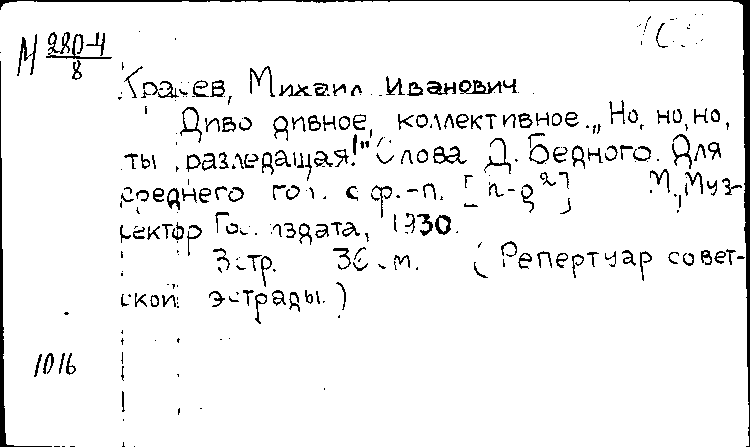 М 280-4
8
Красев, Михаил Иванович
Диво дивное, коллективное. „Но, но, но,
ты, разледащая!" Слова Д. Бедного. Для
среднего гол. с ф.-п. [h-g²] М., Муз-
сектор Госиздата, 1930.
3 стр. 30 см. (Репертуар совет-
ской эстрады.)
1016